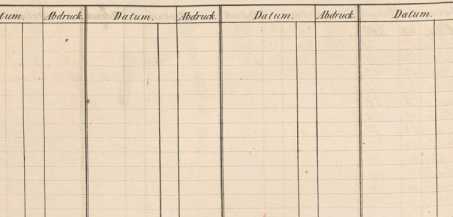 tum. Abdruck. Datum. Abdruck. Datum. Abdruck. Datum.